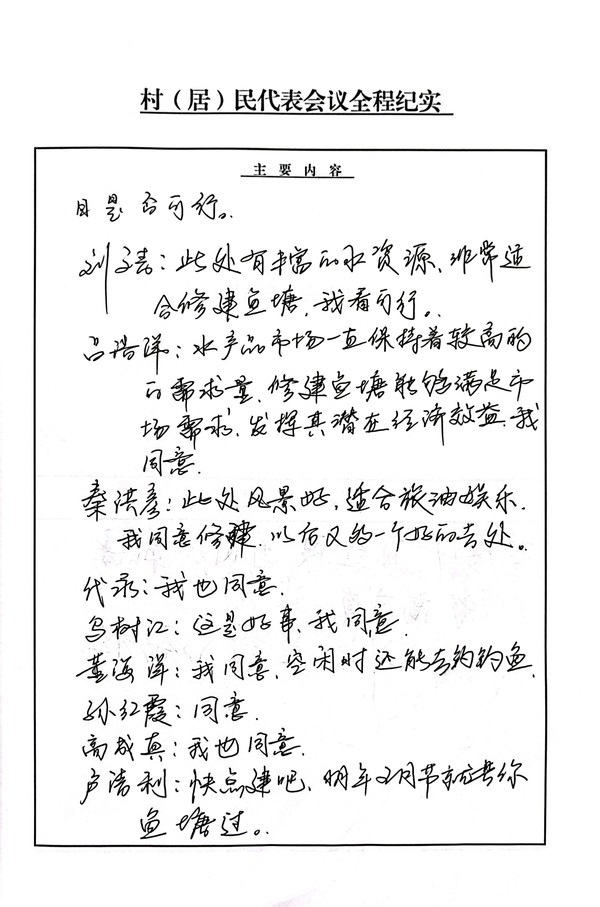 村（居）民代表会议全程纪实
主要内容
目是否可行。
刘涛：此处有丰富的水资源，非常适
合修建鱼塘，我看可行。
吕浩洋：水产品市场一直保持着较高的
的需求量，修建鱼塘能够满足市
场需求，发挥其潜在经济效益，我
同意.
秦洪彦：此处风景好，适合旅油娱乐.
我同意修建.以后又多一个好的去处。
代录：我也同意.
乌树江：这是好事，我同意.
董海洋：我同意，空闲时还能去钓钓鱼.
孙红霞：同意.
高成真：我也同意.
卢洁利：快点建吧，明年五月节就去你
鱼塘过。